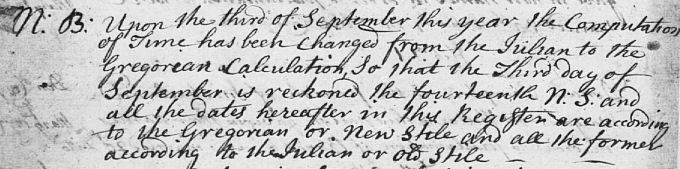 N: B: Upon the third of September this year the Computation
of Time has been changed from the Julian to the
Gregorean Calculation, So that the Third day of
September is reckoned the fourteenth N. S. and
all the dates hereafter in this Register are according
to the Gregorian or New Stile and all the former
according to the Julian or old Stile